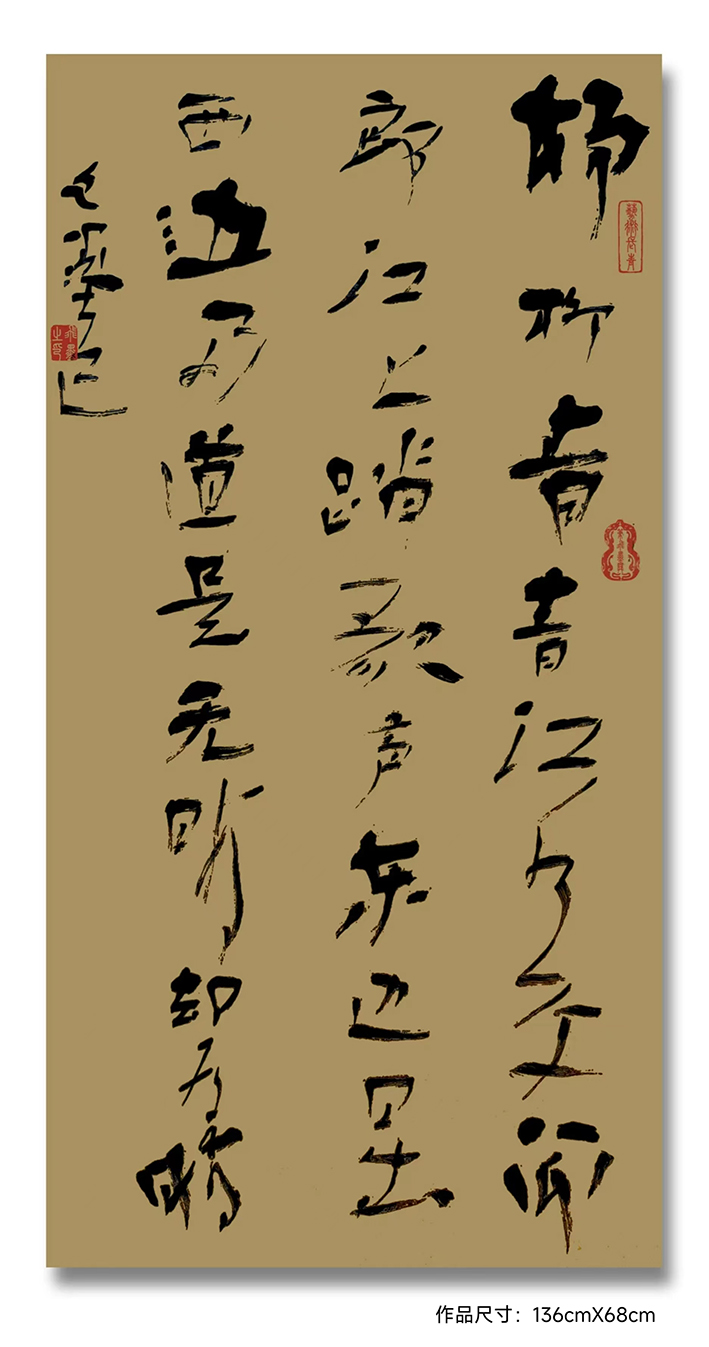 杨柳青青江水平闻
郎江上踏歌声东边日出
西边雨道是无晴却有晴
作品尺寸：136cmX68cm